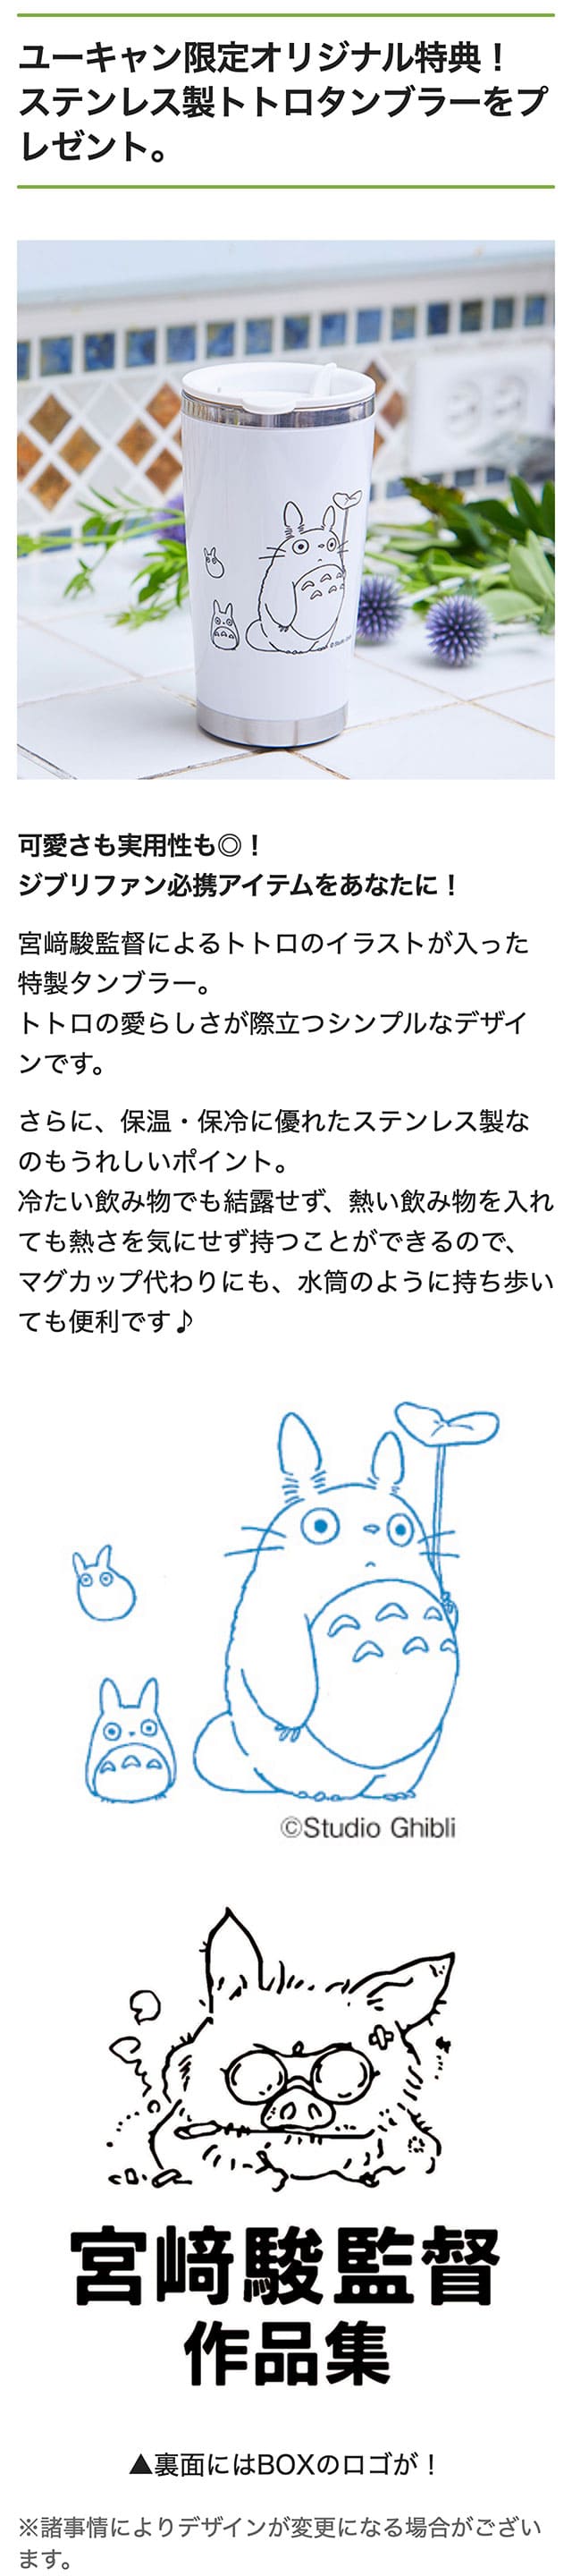 ユーキャン限定オリジナル特典！
ステンレス製トトロタンブラーをプ
レゼント。
可愛さも実用性も◎！
ジブリファン必携アイテムをあなたに！
宮﨑駿監督によるトトロのイラストが入った
特製タンブラー。
トトロの愛らしさが際立つシンプルなデザイ
ンです。
さらに、保温・保冷に優れたステンレス製な
のもうれしいポイント。
冷たい飲み物でも結露せず、熱い飲み物を入れ
ても熱さを気にせず持つことができるので、
マグカップ代わりにも、水筒のように持ち歩い
ても便利です♪
©Studio Ghibli
宮﨑駿監督
作品集
▲裏面にはBOXのロゴが！
※諸事情によりデザインが変更になる場合がござい
ます。